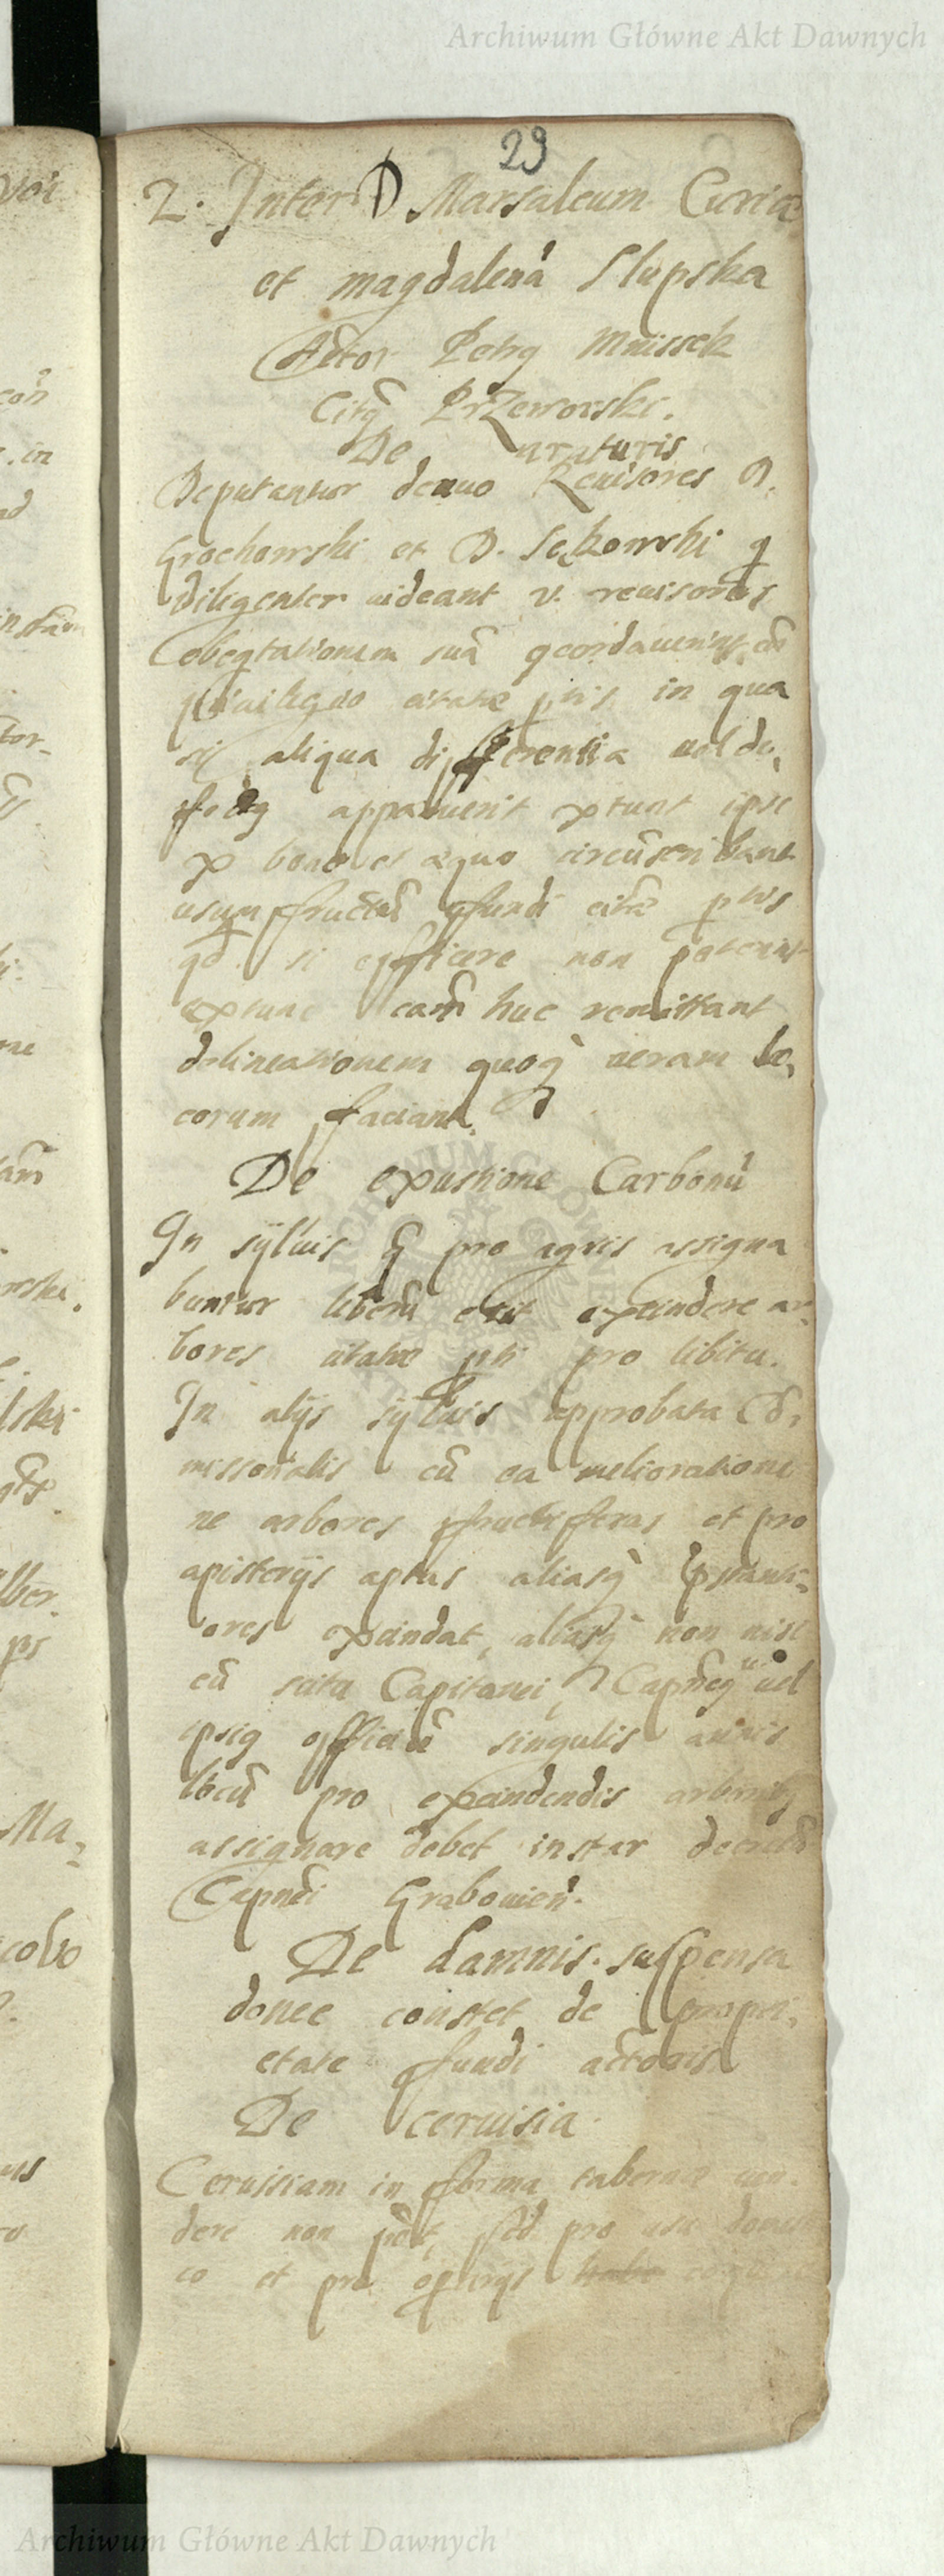 Archiwum Główne Akt Dawnych
29
2. Inter D Marsalcum Curiæ
et magdalenā Slupska
Actor Petrq Mnissek
Citq Przerowski.
De uraturis
Deputantur denuo Reuisores D.
Grochowski et D. Sękowski q
diligenter uideant v. reuisores
suā
priuilegio citatæ ptis, in qua
si aliqua differentia uel de,
fectq apparuerit extunt ipsi
ex bono et æquo circūscribant
usum fructū fundi citæ ptis
qd si efficere non poterint
extunc cam̄ huc remittant
delineationem quoq ueram lo,
corum faciant.
De exustione Carbonū
In syluis q pro agris assigna
buntur liberū erit excindere ar,
bores citatæ pti pro libitu.
In alijs syluis approbata Cō,
missorialis cū ea melioratione
ne arbores fructiferas et pro
apisterijs aptas aliasq pstanti,
ores excindat, aliasq non nisi
cū scitu Capitanei, Capneq uel
ipsiq officiū singulis annis
locū pro excindendis arboribq
assignare debet instar decreti
Capnei Grabouien.
De damnis. suspensa
donec constet de propri,
etate fundi actoris
De ceruisia.
Ceruisiam in forma tabernæ uen,
dere non pōt, sed pro usu domesti
co et pro operijs
Archiwum Główne Akt Dawnych